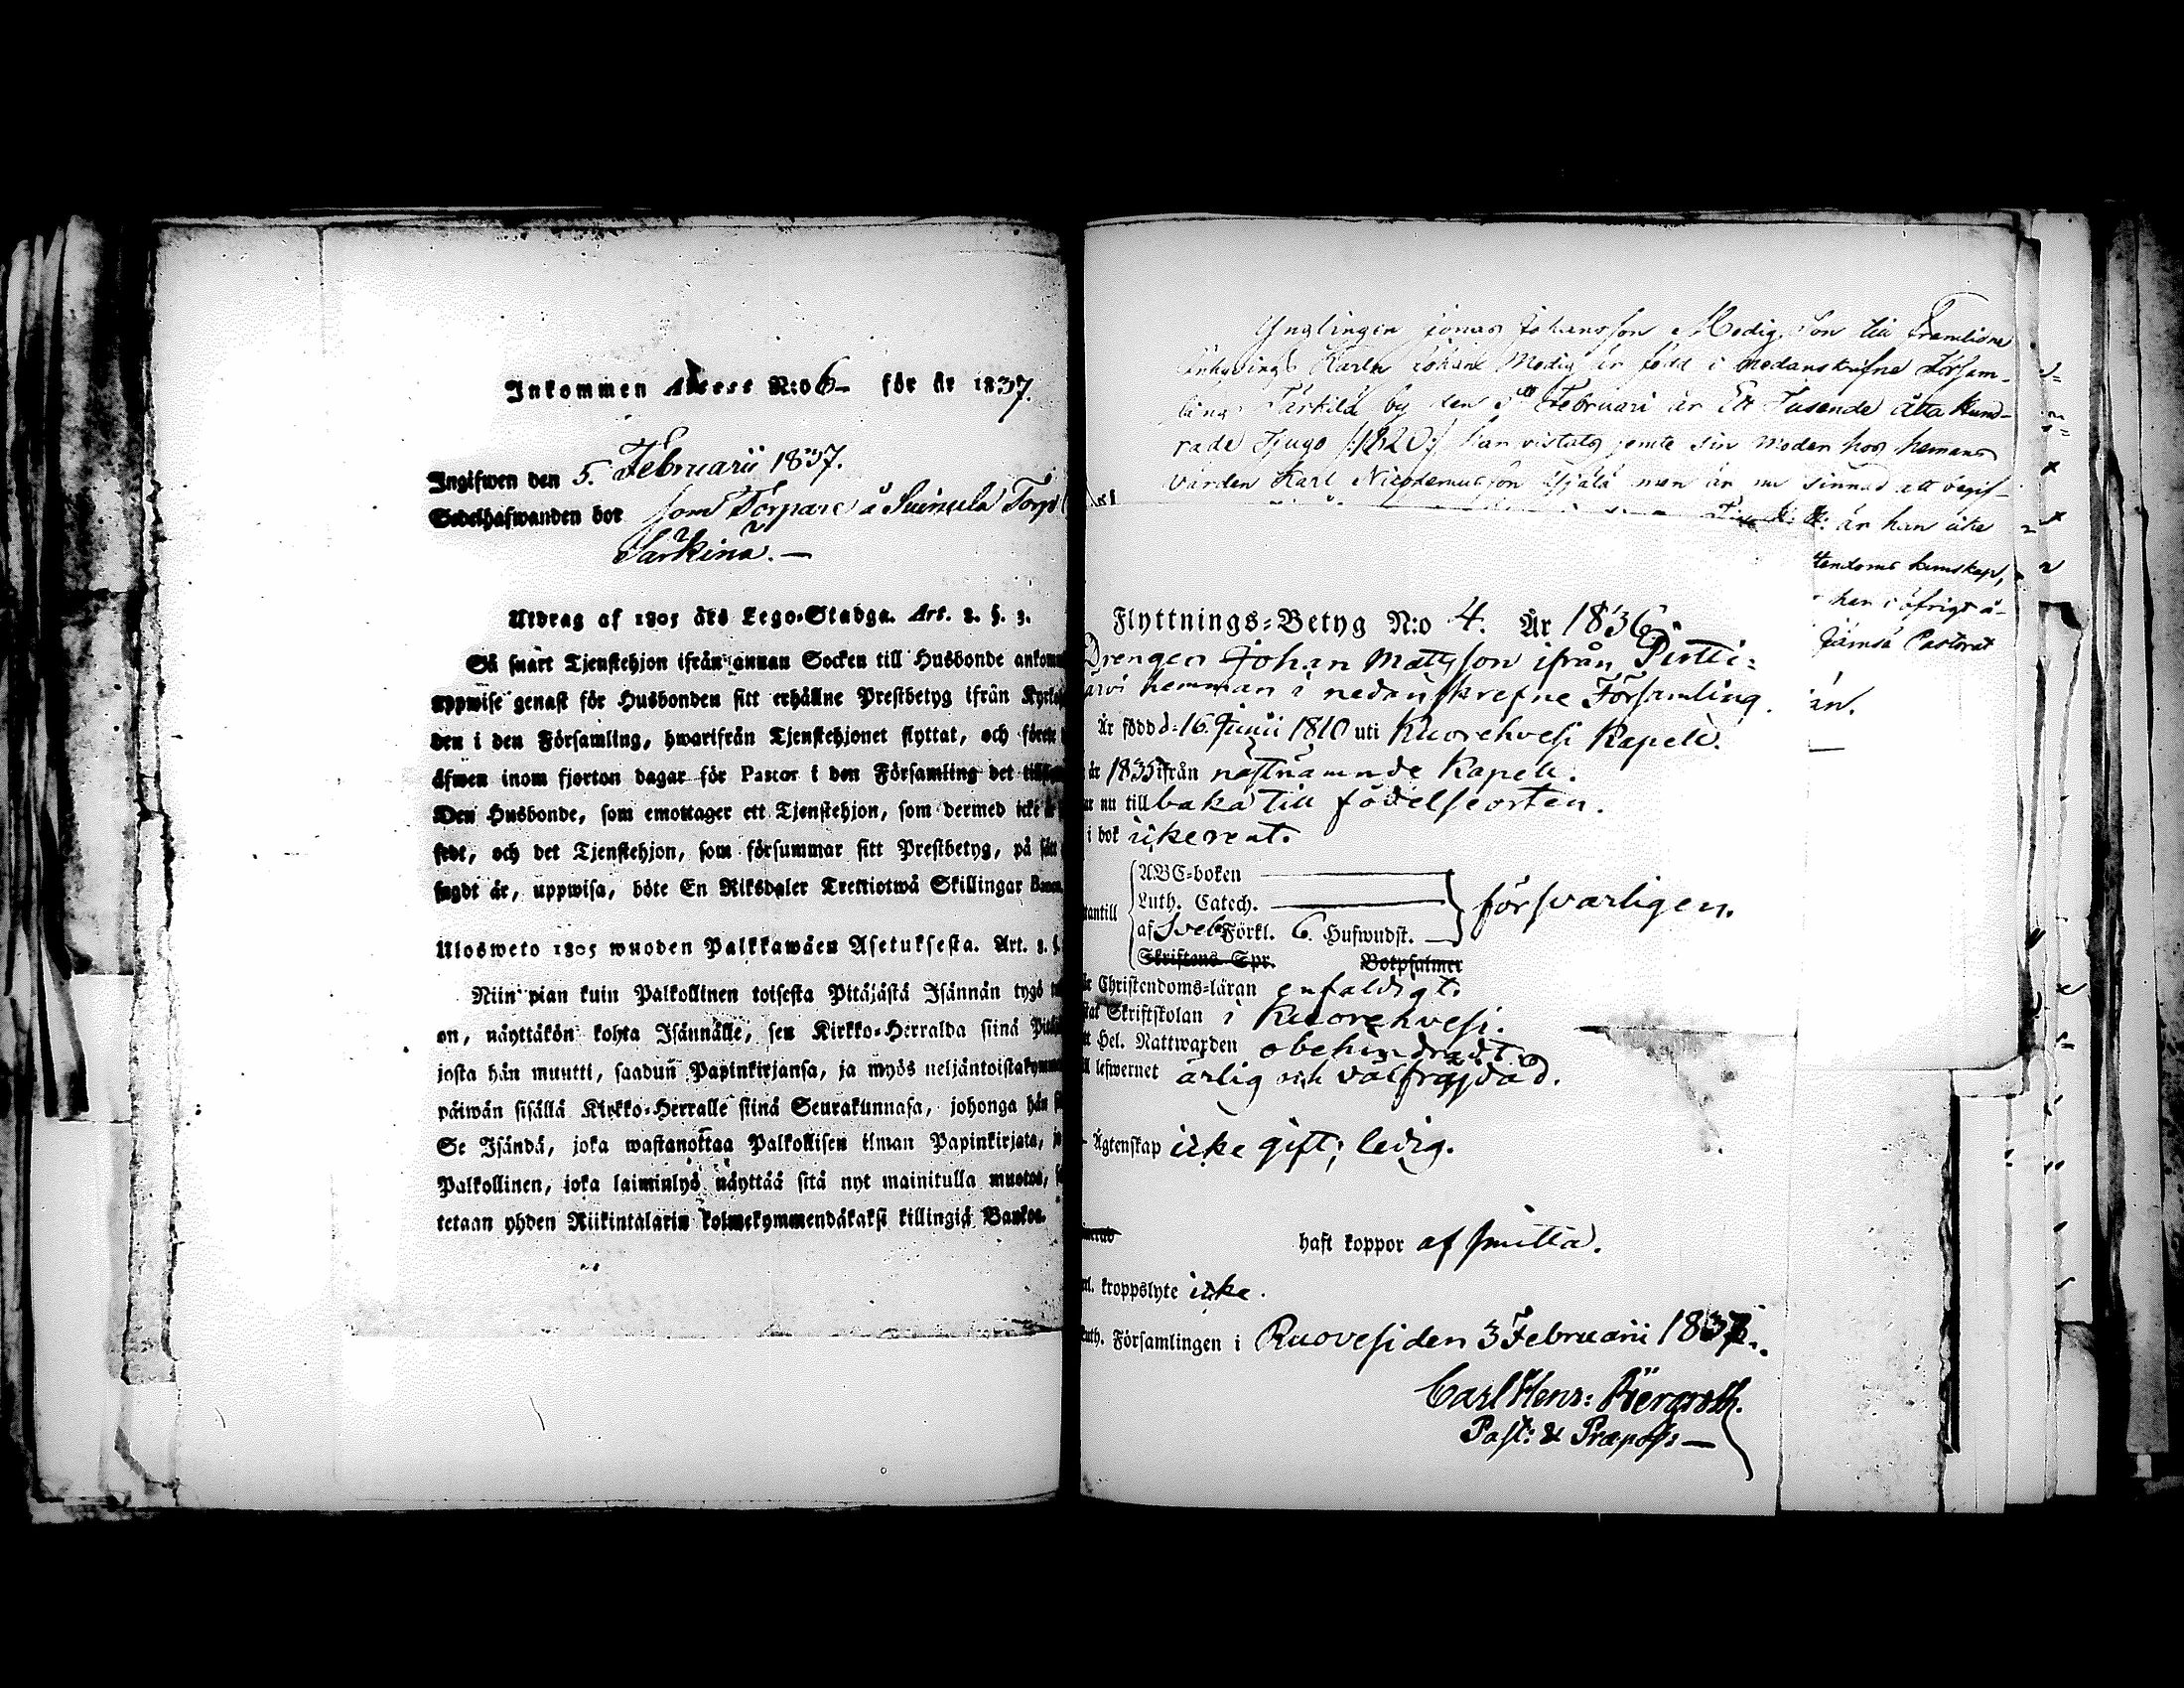 Inkommen Attest N:o 6 för år 1837.
Ingifwen den 5. Februarii 1837.
Sedelhafwanden bor som Torpare å Suinula Torp
Särkinä.
Utdrag af 1805 års Lego-Stadga. Art. 2. §. 3.
Så snart Tjenstehjon ifrån annan Socken till Husbonde ankom
uppwise genast för Husbonden sitt erhållne Prestbetyg ifrån Kyrko
den i den Församling, hwarifrån Tjenstehjonet flyttat, och förete
äfwen inom fjorton dagar för Pastor i den Församling det
Den Husbonde, som emottager ett Tjenstehjon, som dermed icke
sedt, och det Tjenstehjon, som försummar sitt Prestbetyg, på sätt
sagdt är, uppwisa, böte En Riksdaler Trettiotwå Skillingar Banco.
Ulosweto 1805 wuoden Palkkawäen Asetuksesta. Art. 2. §.
Niin pian kuin Palkollinen toisesta Pitäjästä Isännän tygö
on, näyttäkön kohta Isännälle, sen Kirkko-Herralda siinä
josta hän muutti, saadun Papinkirjansa, ja myös neljäntoistakymmenen
päiwän sisällä Kirkko-Herralle siinä Seurakunnasa, johonga hän
Se Isändä, joka wastanottaa Palkollisen ilman Papinkirjata,
Palkollinen, joka laiminlyö näyttää sitä nyt mainitulla muotoa,
tetaan yhden Riikintalarin kolmekymmendäkaksi killingiä Bankos.
Ynglingen Jonas Johansson Modig, Son till framlidne
Inhysings Karln Johan Modig är född i nedanskrifne Församlings
Särkilä by den 5 Februari år Ett Tusende åtta Hund-
rade Tjugo /:1820:/ han vistats jemte sin moder hos hemmans
värden Karl Nicodemusson men är nu sinnad att begif-
är han icke
stendoms kunskap,
han i öfrigt å-
Jämsä Pastorat
än.
Flyttnings-Betyg N:o 4. År 1836
Drengen Johan Mattsson ifrån Pirtti-
arvi hemman i nedanskrefne Församling.
Är född d: 16. Junii 1810 uti Kuorehvesi Kapell.
år 1835 ifrån nästnämnde Kapell.
ar nu till baka till födelseorten.
i bok icke rent.
ABC-boken
Luth. Catech.
utantill försvarligen.
af Sveb. Förkl. 6. Hufwudst.
Skriftens Spr. Botpsalmer
Christendoms-läran enfaldigt.
Skriftskolan i Kuorehvesi.
Hel. Nattwarden obehindradt.
lefwernet ärlig och välfräjdad.
Ägtenskap icke gift; ledig.
haft koppor af smitta.
kroppslyte icke.
Luth. Församlingen i Ruovesi den 3 Februarii 1837.
Carl Henr: Bergroth.
Past: & Præpos: